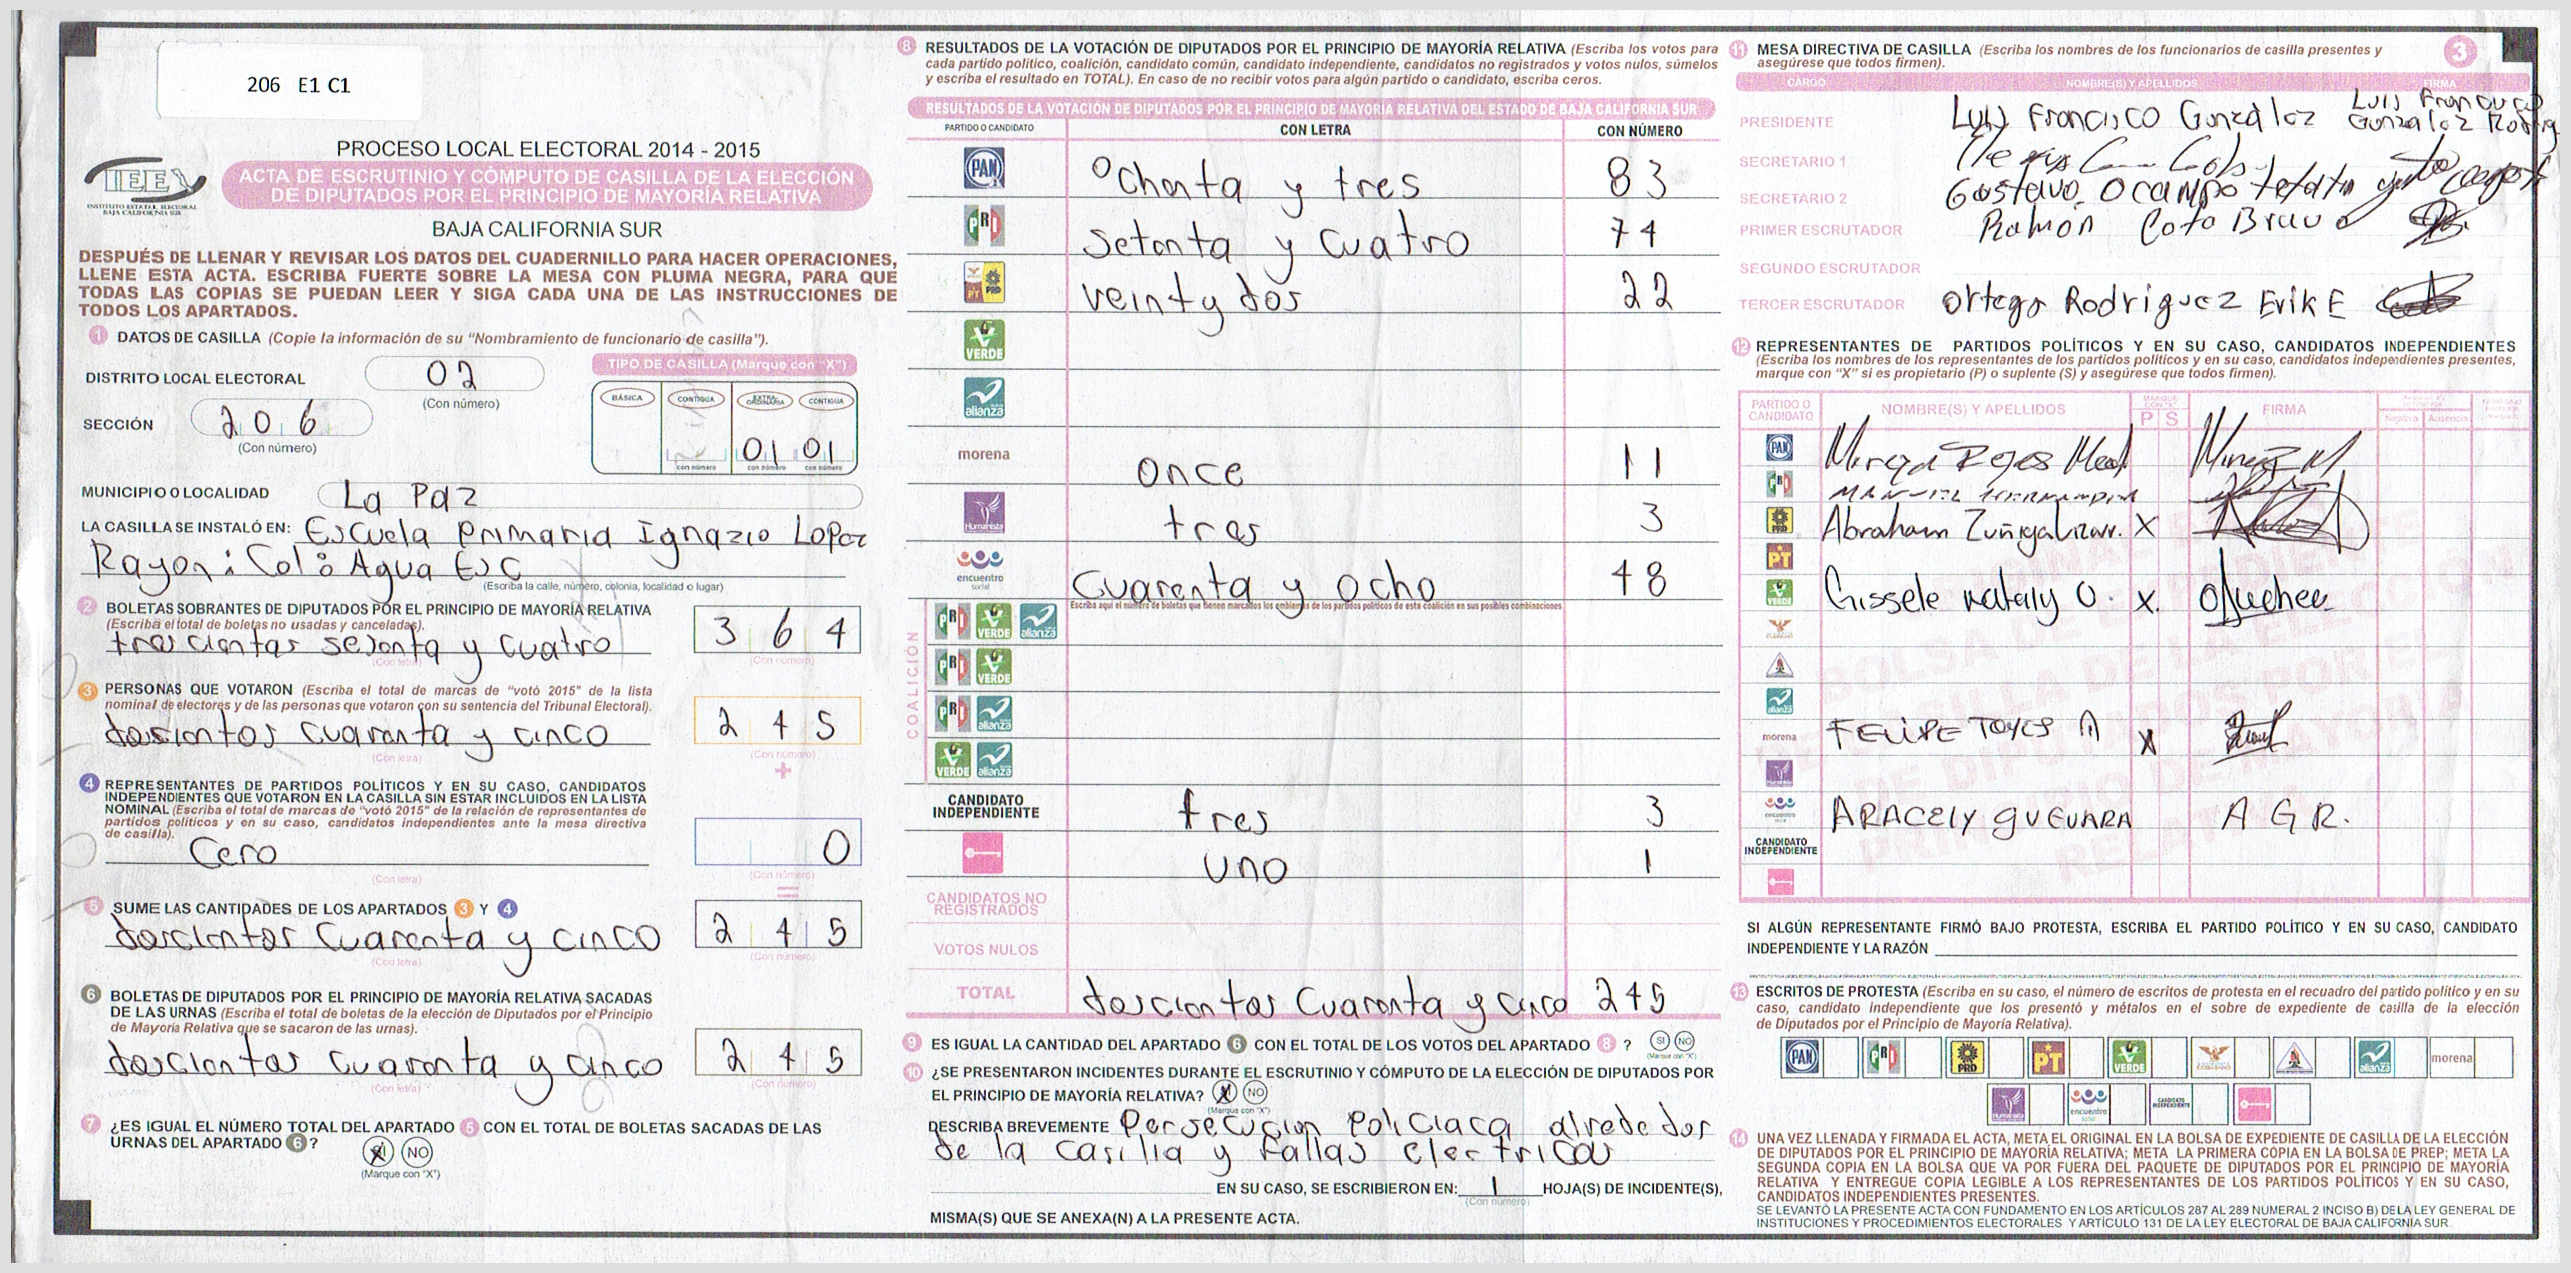 206 E1 C1
PROCESO LOCAL ELECTORAL 2014 - 2015
IEE
INSTITUTO ESTATAL ELECTORAL
BAJA CALIFORNIA SUR
ACTA DE ESCRUTINIO Y CÓMPUTO DE CASILLA DE LA ELECCIÓN
DE DIPUTADOS POR EL PRINCIPIO DE MAYORÍA RELATIVA
BAJA CALIFORNIA SUR
DESPUÉS DE LLENAR Y REVISAR LOS DATOS DEL CUADERNILLO PARA HACER OPERACIONES,
LLENE ESTA ACTA. ESCRIBA FUERTE SOBRE LA MESA CON PLUMA NEGRA, PARA QUE
TODAS LAS COPIAS SE PUEDAN LEER Y SIGA CADA UNA DE LAS INSTRUCCIONES DE
TODOS LOS APARTADOS.
1 DATOS DE CASILLA (Copie la información de su "Nombramiento de funcionario de casilla").
DISTRITO LOCAL ELECTORAL 02
(Con número)
SECCIÓN 206
(Con número)
TIPO DE CASILLA (Marque con "X")
BÁSICA CONTIGUA EXTRAORDINARIA CONTIGUA
01 01
con número con número con número
MUNICIPIO O LOCALIDAD La Paz
LA CASILLA SE INSTALÓ EN: Escuela Primaria Ignazio Lopez
Rayon: Col: Agua Esc
(Escriba la calle, número, colonia, localidad o lugar)
2 BOLETAS SOBRANTES DE DIPUTADOS POR EL PRINCIPIO DE MAYORÍA RELATIVA
(Escriba el total de boletas no usadas y canceladas).
trescientas sesenta y cuatro 364
(Con letra) (Con número)
3 PERSONAS QUE VOTARON (Escriba el total de marcas de "votó 2015" de la lista
nominal de electores y de las personas que votaron con su sentencia del Tribunal Electoral).
doscientos cuarenta y cinco 245
(Con letra) (Con número)
+
4 REPRESENTANTES DE PARTIDOS POLÍTICOS Y EN SU CASO, CANDIDATOS
INDEPENDIENTES QUE VOTARON EN LA CASILLA SIN ESTAR INCLUIDOS EN LA LISTA
NOMINAL (Escriba el total de marcas de "votó 2015" de la relación de representantes de
partidos políticos y en su caso, candidatos independientes ante la mesa directiva
de casilla).
Cero 0
(Con letra) (Con número)
=
5 SUME LAS CANTIDADES DE LOS APARTADOS 3 Y 4
doscientos cuarenta y cinco 245
(Con letra) (Con número)
6 BOLETAS DE DIPUTADOS POR EL PRINCIPIO DE MAYORÍA RELATIVA SACADAS
DE LAS URNAS (Escriba el total de boletas de la elección de Diputados por el Principio
de Mayoría Relativa que se sacaron de las urnas).
doscientas cuarenta y cinco 245
(Con letra) (Con número)
7 ¿ES IGUAL EL NÚMERO TOTAL DEL APARTADO 5 CON EL TOTAL DE BOLETAS SACADAS DE LAS
URNAS DEL APARTADO 6 ?
SI NO
(Marque con "X")
8 RESULTADOS DE LA VOTACIÓN DE DIPUTADOS POR EL PRINCIPIO DE MAYORÍA RELATIVA (Escriba los votos para
cada partido político, coalición, candidato común, candidato independiente, candidatos no registrados y votos nulos, súmelos
y escriba el resultado en TOTAL). En caso de no recibir votos para algún partido o candidato, escriba ceros.
RESULTADOS DE LA VOTACIÓN DE DIPUTADOS POR EL PRINCIPIO DE MAYORÍA RELATIVA DEL ESTADO DE BAJA CALIFORNIA SUR
PARTIDO O CANDIDATO CON LETRA CON NÚMERO
PAN Ochenta y tres 83
PRI Setenta y Cuatro 74
PT PRD veinty dos 22
VERDE
alianza
morena once 11
Humanista tres 3
encuentro social Cuarenta y ocho 48
Escriba aquí el número de boletas que tienen marcados los emblemas de los partidos políticos de esta coalición en sus posibles combinaciones
COALICIÓN
PRI VERDE alianza
PRI VERDE
PRI alianza
VERDE alianza
CANDIDATO
INDEPENDIENTE tres 3
uno 1
CANDIDATOS NO
REGISTRADOS
VOTOS NULOS
TOTAL doscientas Cuarenta y cinco 245
9 ES IGUAL LA CANTIDAD DEL APARTADO 6 CON EL TOTAL DE LOS VOTOS DEL APARTADO 8 ? SI NO
(Marque con "X")
10 ¿SE PRESENTARON INCIDENTES DURANTE EL ESCRUTINIO Y CÓMPUTO DE LA ELECCIÓN DE DIPUTADOS POR
EL PRINCIPIO DE MAYORÍA RELATIVA? SI NO
(Marque con "X")
DESCRIBA BREVEMENTE Persecucion Policiaca alrededor
de la casilla y fallas electricas
EN SU CASO, SE ESCRIBIERON EN: 1 HOJA(S) DE INCIDENTE(S),
(Con número)
MISMA(S) QUE SE ANEXA(N) A LA PRESENTE ACTA.
3
11 MESA DIRECTIVA DE CASILLA (Escriba los nombres de los funcionarios de casilla presentes y
asegúrese que todos firmen).
CARGO NOMBRE(S) Y APELLIDOS FIRMA
PRESIDENTE Luis Francisco González Luis Francisco
González Rodrig
SECRETARIO 1
SECRETARIO 2 Gustavo Ocampo
PRIMER ESCRUTADOR Ramón Coto Bravo
SEGUNDO ESCRUTADOR
TERCER ESCRUTADOR Ortega Rodriguez Erik E
12 REPRESENTANTES DE PARTIDOS POLÍTICOS Y EN SU CASO, CANDIDATOS INDEPENDIENTES
(Escriba los nombres de los representantes de los partidos políticos y en su caso, candidatos independientes presentes,
marque con "X" si es propietario (P) o suplente (S) y asegúrese que todos firmen).
PARTIDO O
CANDIDATO NOMBRE(S) Y APELLIDOS P S FIRMA
PAN
PRI
PRD Abraham Zuñiga X
PT
VERDE Gissele Nataly O. X
alianza
morena FELIPE TOYES A X
encuentro social ARACELY GUEVARA A G R.
CANDIDATO
INDEPENDIENTE
SI ALGÚN REPRESENTANTE FIRMÓ BAJO PROTESTA, ESCRIBA EL PARTIDO POLÍTICO Y EN SU CASO, CANDIDATO
INDEPENDIENTE Y LA RAZÓN
13 ESCRITOS DE PROTESTA (Escriba en su caso, el número de escritos de protesta en el recuadro del partido político y en su
caso, candidato independiente que los presentó y métalos en el sobre de expediente de casilla de la elección
de Diputados por el Principio de Mayoría Relativa).
PAN PRI PRD PT VERDE alianza morena
Humanista encuentro CANDIDATO INDEPENDIENTE
14 UNA VEZ LLENADA Y FIRMADA EL ACTA, META EL ORIGINAL EN LA BOLSA DE EXPEDIENTE DE CASILLA DE LA ELECCIÓN
DE DIPUTADOS POR EL PRINCIPIO DE MAYORÍA RELATIVA; META LA PRIMERA COPIA EN LA BOLSA DE PREP; META LA
SEGUNDA COPIA EN LA BOLSA QUE VA POR FUERA DEL PAQUETE DE DIPUTADOS POR EL PRINCIPIO DE MAYORÍA
RELATIVA Y ENTREGUE COPIA LEGIBLE A LOS REPRESENTANTES DE LOS PARTIDOS POLÍTICOS Y EN SU CASO,
CANDIDATOS INDEPENDIENTES PRESENTES.
SE LEVANTÓ LA PRESENTE ACTA CON FUNDAMENTO EN LOS ARTÍCULOS 287 AL 289 NUMERAL 2 INCISO B) DE LA LEY GENERAL DE
INSTITUCIONES Y PROCEDIMIENTOS ELECTORALES Y ARTÍCULO 131 DE LA LEY ELECTORAL DE BAJA CALIFORNIA SUR.